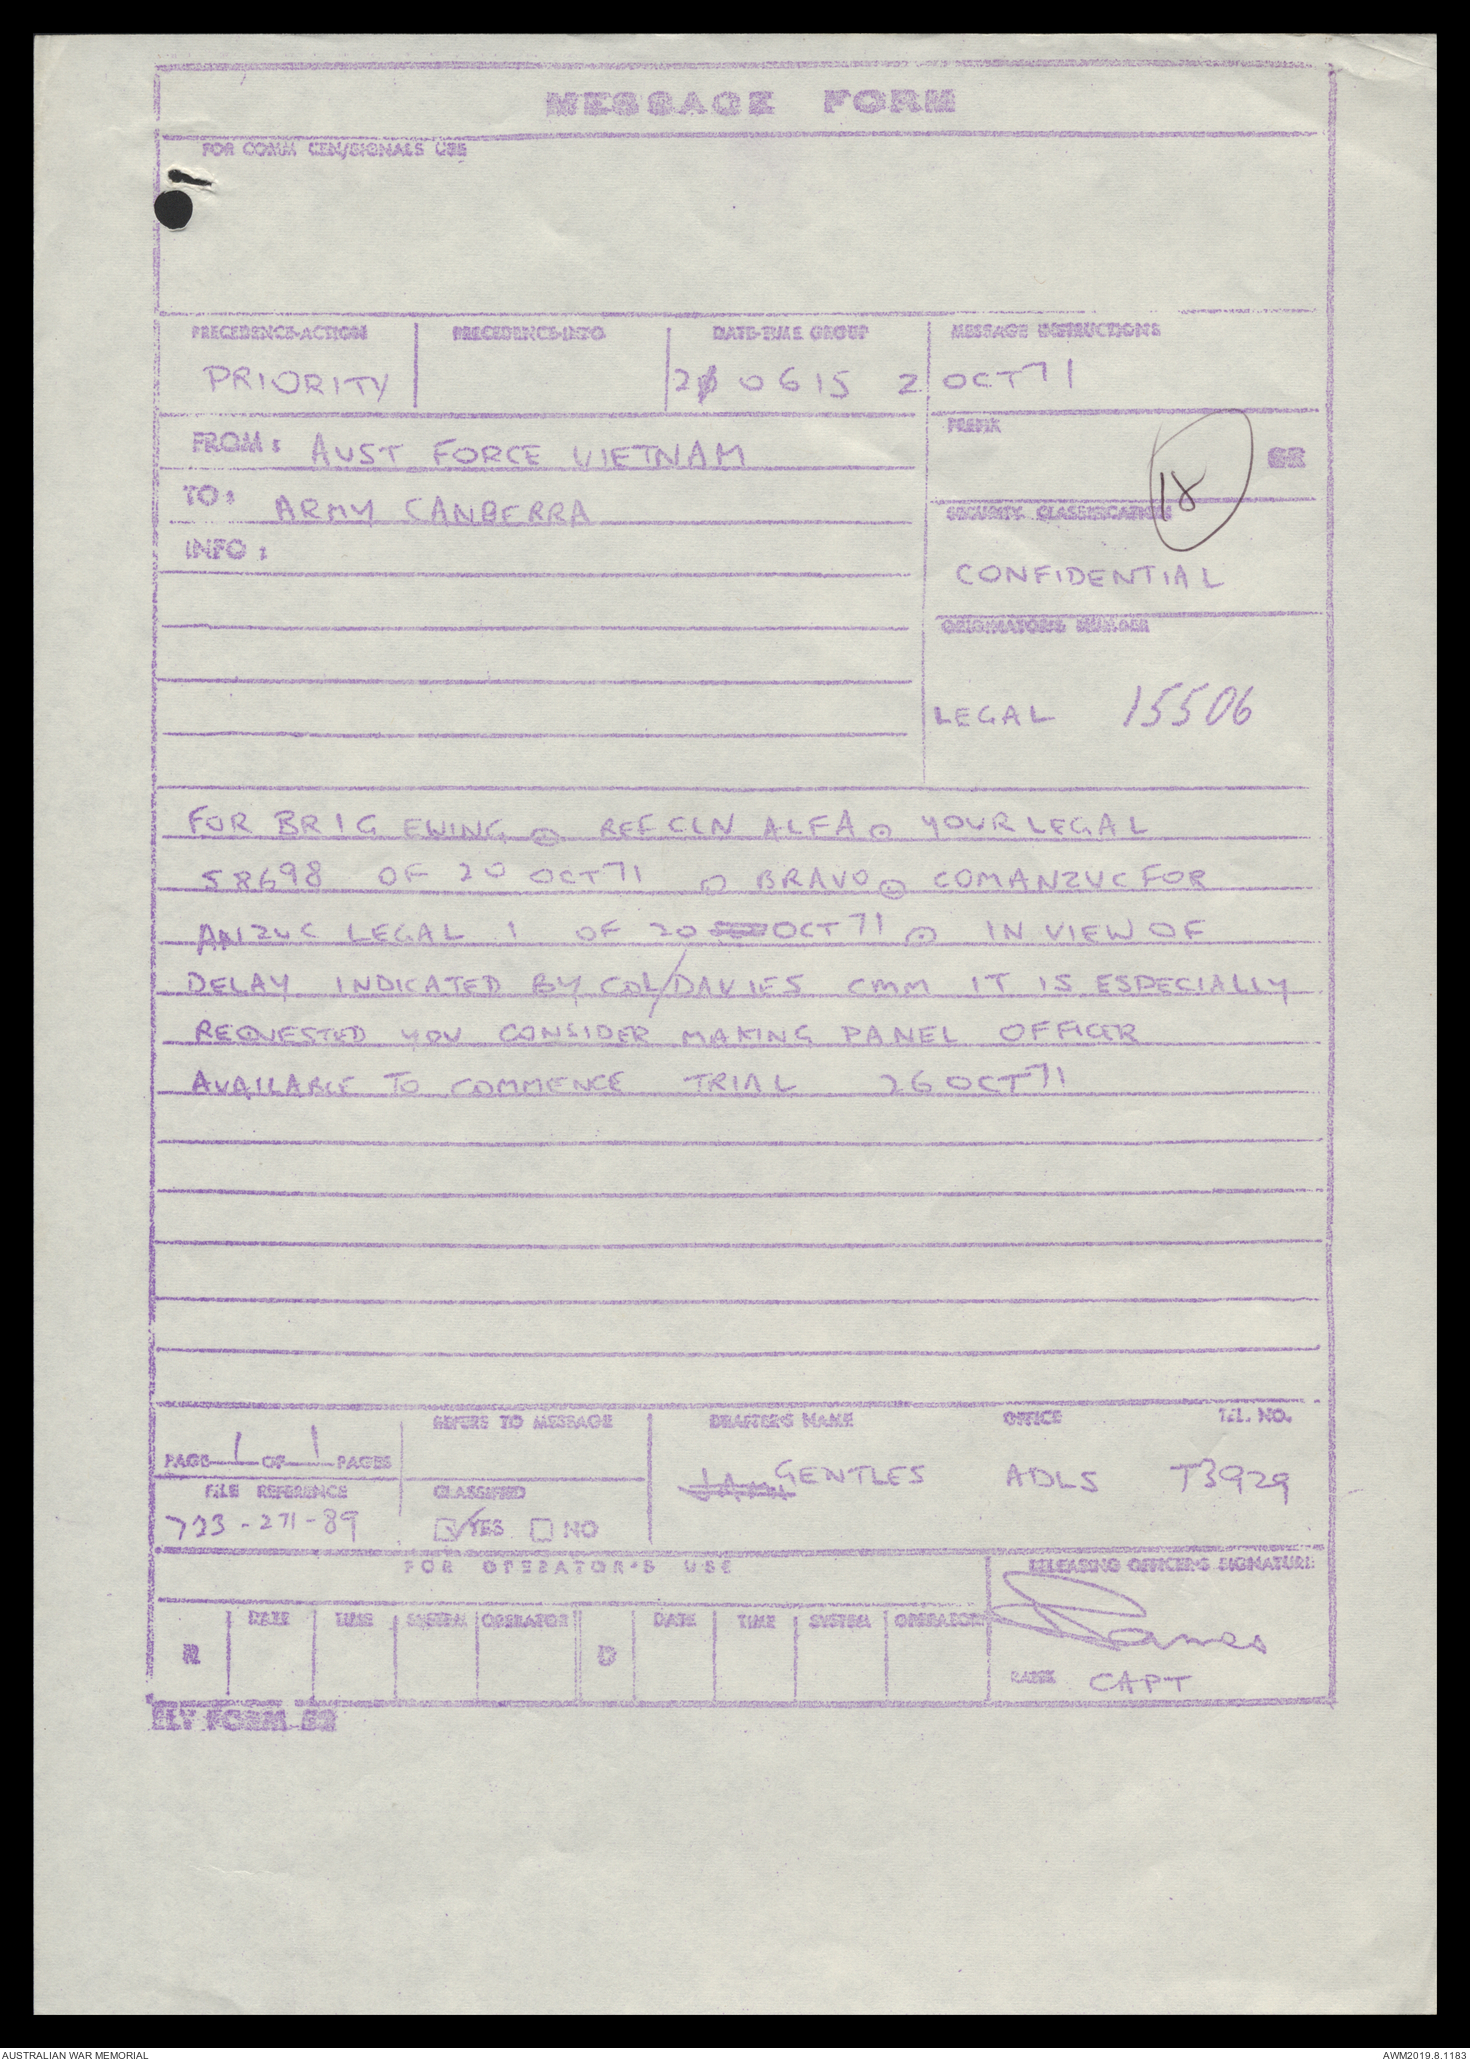 MESSAGE FORM
FOR COMM CEN/SIGNALS USE
PRECEDENCE-ACTION PRECEDENCE-INFO DATE-TIME GROUP MESSAGE INSTRUCTIONS
PRIORITY 210615 Z OCT 71
FROM: AUST FORCE VIETNAM
PREFIX
GR
TO: ARMY CANBERRA
18
SECURITY CLASSIFICATION
INFO:
CONFIDENTIAL
ORIGINATORS NUMBER
LEGAL 15506
FOR BRIG EWING ⊙ REF CLN ALFA ⊙ YOUR LEGAL
58698 OF 20 OCT 71 ⊙ BRAVO ⊙ COMANZUCFOR
ANZUC LEGAL 1 OF 20 OCT 71 ⊙ IN VIEW OF
DELAY INDICATED BY COL/DAVIES CMM IT IS ESPECIALLY
REQUESTED YOU CONSIDER MAKING PANEL OFFICER
AVAILABLE TO COMMENCE TRIAL 26 OCT 71
REFERS TO MESSAGE DRAFTER'S NAME OFFICE TEL. NO.
PAGE 1 OF 1 PAGES
GENTLES ADLS T3929
FILE REFERENCE CLASSIFIED
723-271-89 YES NO
FOR OPERATOR'S USE RELEASING OFFICER'S SIGNATURE
R DATE TIME SYSTEM OPERATOR D DATE TIME SYSTEM OPERATOR
RANK CAPT
FORM 52
AUSTRALIAN WAR MEMORIAL AWM2019.8.1183